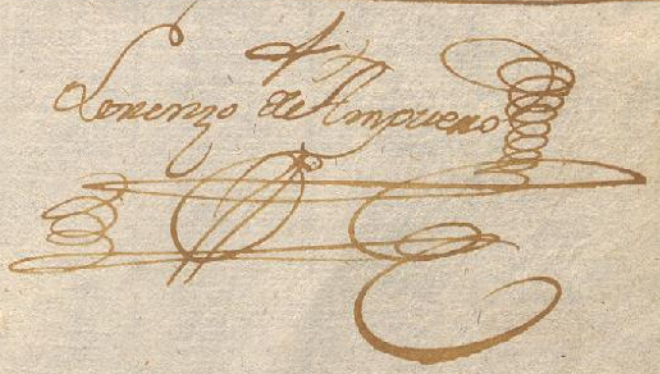 Lorenzo de Ampuero